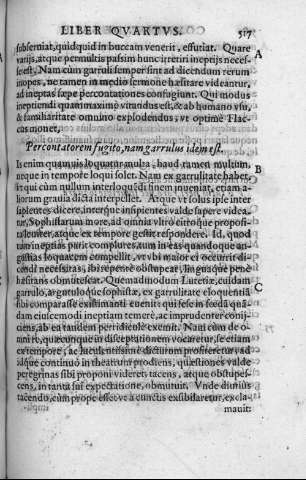 LIBER QVARTVS. 517
subserniat, quidquid in buccam venerit, effutiat. Quare
varijs, atque permultis passim hunc irretiri ineptijs neces-
se est. Nam cùm garruli semper sint ad dicendum rerum
inopes, ne tamen in medio sermone hæsitare videantur,
ad ineptas sæpe percontationes confugiunt. Qui modus
ineptiendi quammaximè vitandus est, & ab humano vsu,
& familiaritate omnino explodendus, vt optimè Flac-
cus monet,
Percontatorem fugito, nam garrulus idem est.
Is enim quamuis loquatur multa, haud tamen multùm,
neque in tempore loqui solet. Nam ex garrulitate habet,
vt qui cùm nullum interloquēdi finem inueniat, etiam a-
liorum grauia dicta interpellet. Atque vt solus ipse inter
sapientes dicere, interque insipientes valde sapere videa-
tur, Sophistarum more, ad omnia vltrò citróque proposi-
ta, leuiter, atque ex tempore gestit respondere. Id, quod
tum ineptias parit complures, tum in eas quandoque an-
gustias loquacem compellit, vt vbi maior ei occurrit di-
cendi necessitas, ibi repentè obstupeat, linguáque penè
hæsitans obmutescat. Quemadmodum Luretiæ, cuidam
garrulo, argutulóque sophistæ, ex garrulitate eloquentiā
sibi comparasse existimanti euenit: qui sese in fœdā quā-
dam eiuscemodi ineptiam temerè, ac imprudenter conij-
ciens, ab ea tandem periridiculè exemit. Nam cùm de o-
mni re, quæcunque in disceptationem vocaretur, se etiam
ex tempore, ac luculentissimè dicturum profiteretur, ad-
idque continuò in theatrum prodiens, quæstiones valde
peregrinas sibi proponi videret: tacens, atque obstupes-
cens, in tanta sui expectatione, obmutuit. Vnde diutius
tacendo, cùm prope esset vt à cunctis exsibilaretur, excla-
mauit:
A
B
C